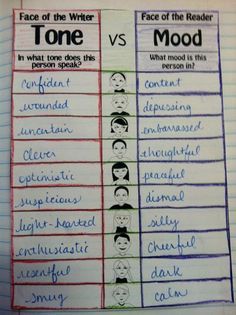 Face of the Writer
Tone
In what tone does this
person speak?
VS
Face of the Reader
Mood
What mood is this
person in?
confident content
wounded depressing
uncertain embarrassed
clever thoughtful
optimistic peaceful
suspicious dismal
light-hearted silly
enthusiastic cheerful
resentful dark
smug calm